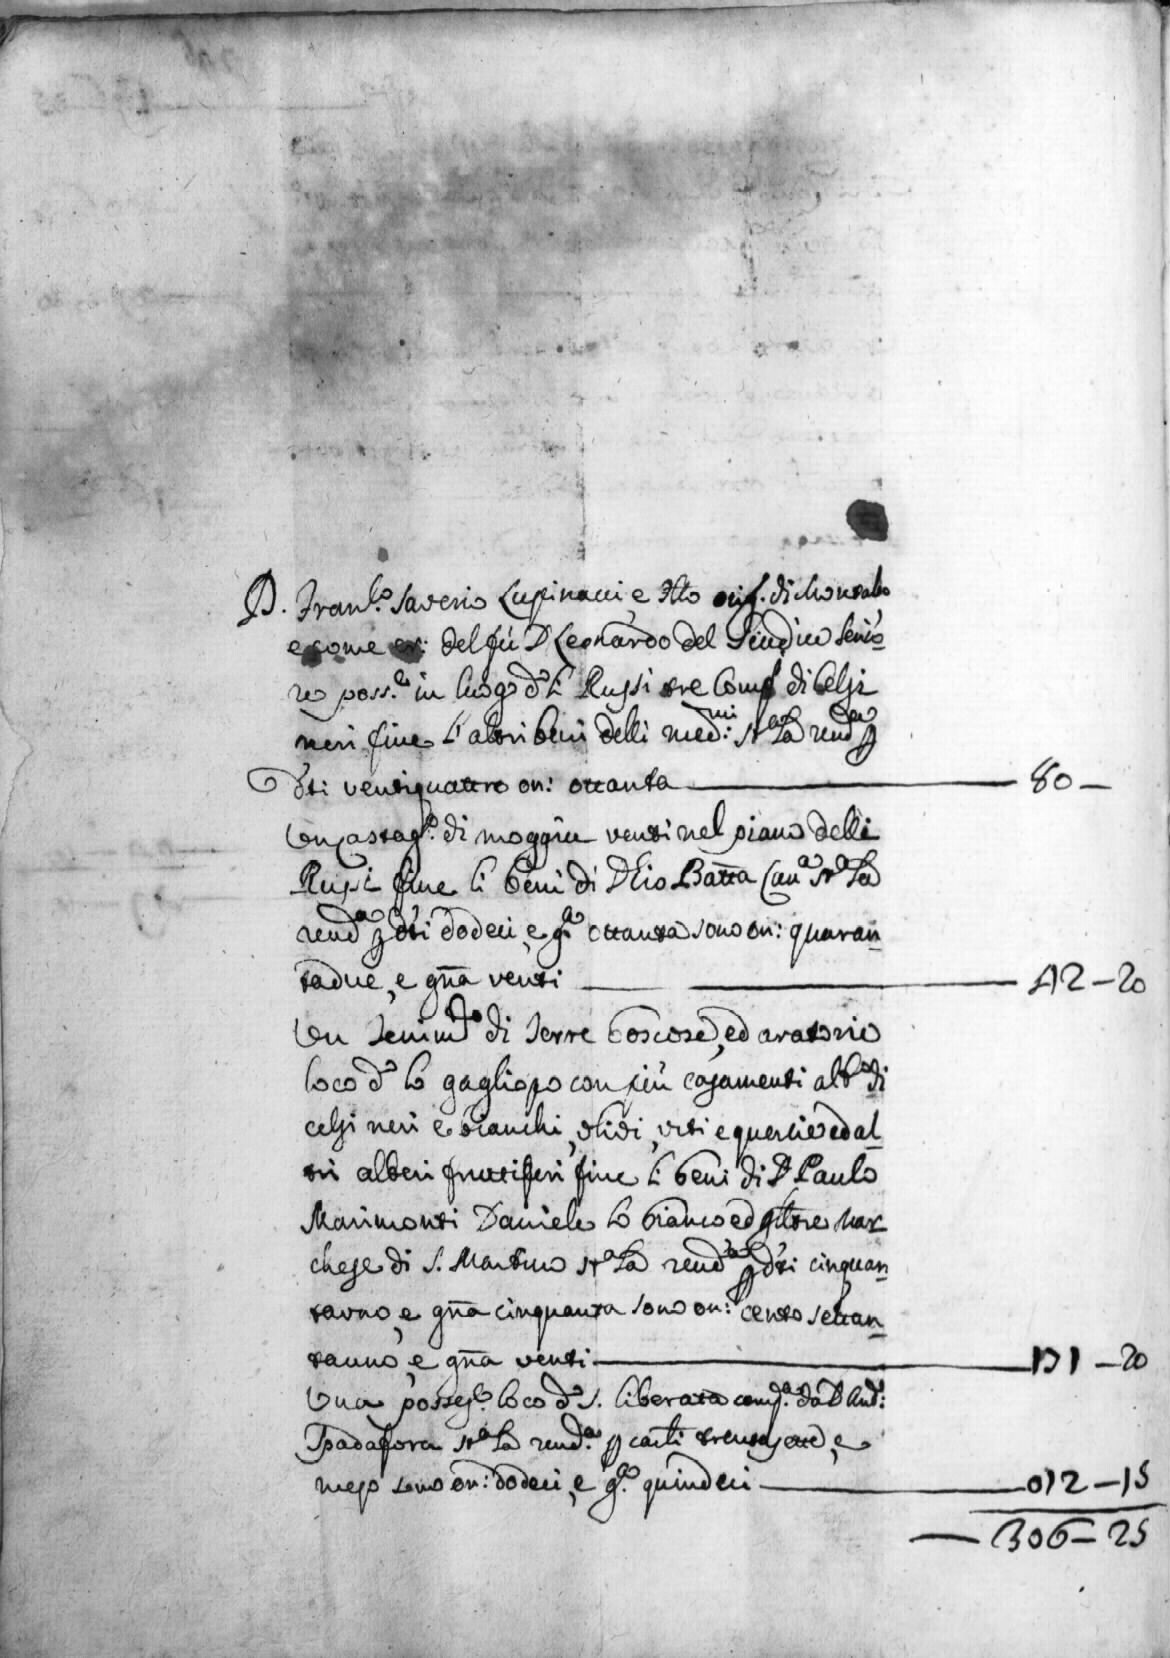 D. Fran.co Saverio Lupinacci, e Fllo orig. di Montalto
e come er: del fù D Leonardo del Giudice sen'o
re poss.e in luogo d.o li Russi tre Comp. di Celsi
neri fine l'altri beni delli med:mi st.a la rend.a p
d.ti ventiquattro on: ottanta — 80 —
Un castag.to di moggia venti nel piano delli
Russi fine li beni di D Gio Batta Cau.a st.a la
rend.a p d.ti dodeci, e g.a ottanta sono on: quaran
tadue, e gna venti — 42 – 20
Un tenim.to di terre boscose, ed aratorio
loco d.o lo gagliopo con più casamenti alb.to di
celsi neri e bianchi, olivi, viti e quercie ed al
tri alberi fruttiferi fine li beni di D Paulo
Marimonti Daniele lo bianco ed altre Mar
chese di S. Martino st.a la rend.a p d.ti cinquan
tauno, e gna cinquanta sono on: cento settan
tauno, e gna venti — 171 – 20
Una posses.e loco d.o S. Liberata comp.a da D And:
Spadafora st.a la rend.a p carli trentasette, e
mezo sono on: dodeci, e g.a quindeci — 012 – 15
— 306 – 25